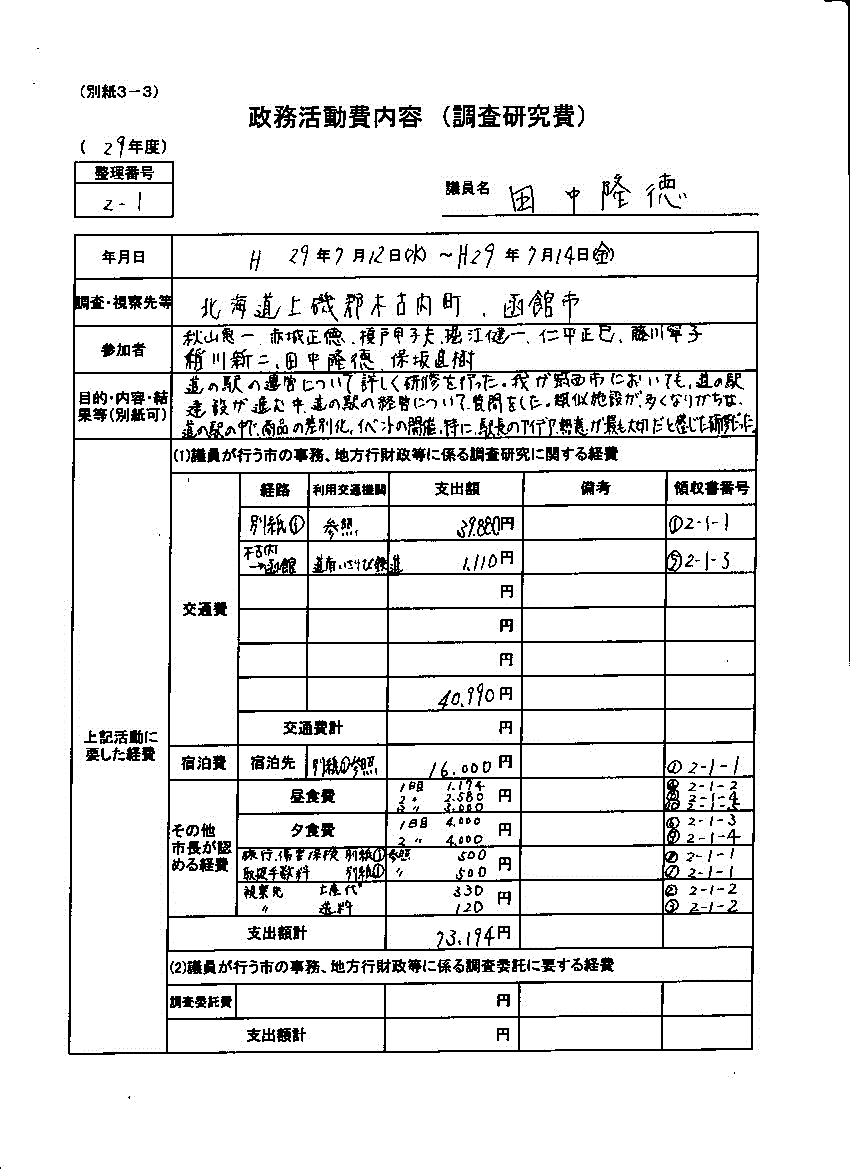 (別紙3-3)
政務活動費内容 (調査研究費)
( 29年度)
整理番号
2-1
議員名 田中隆徳
年月日 H 29年7月12日(水) ~H29年7月14日(金)
調査・視察先等 北海道上磯郡木古内町、函館市
参加者 秋山恵一、赤城正徳、榎戸甲子夫、堀江健一、仁平正巳、藤川寧子
稲川新二、田中隆徳、保坂直樹
目的・内容・結果等(別紙可) 道の駅の運営について詳しく研修を行った。我が筑西市においても、道の駅
建設が進む中、道の駅の経営について質問をした。類似施設が多くなりがちな、
道の駅の中で、商品の差別化、イベントの開催、特に、駅長のアイデア、熱意が最も大切だと感じた研修だった。
上記活動に要した経費
(1)議員が行う市の事務、地方行財政等に係る調査研究に関する経費
交通費 経路 利用交通機関 支出額 備考 領収書番号
別紙① 参照 39.880円 ①2-1-1
木古内→函館 道南いさりび鉄道 1.110円 ⑤2-1-3
円
円
円
40.990円
交通費計 円
宿泊費 宿泊先 別紙①参照 16.000円 ①2-1-1
その他市長が認める経費
昼食費 1日目 1.194 円 ④2-1-2
2〃 2.580 ⑧2-1-4
3〃 3.000 ⑩2-1-5
夕食費 1日目 4.000 円 ⑥2-1-3
2〃 4.000 ⑨2-1-4
旅行傷害保険 別紙①参照 500 円 ①2-1-1
取扱手数料 別紙①〃 500 ①2-1-1
視察先 土産代 330 円 ②2-1-2
〃 送料 120 ③2-1-2
支出額計 73.194円
(2)議員が行う市の事務、地方行財政等に係る調査委託に要する経費
調査委託費 円
支出額計 円